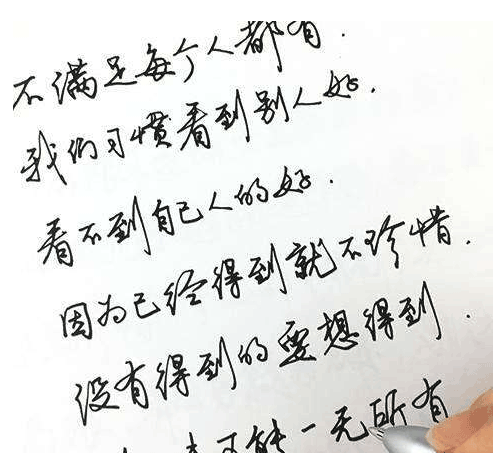 不满足每个人都有.
我们习惯看到别人好.
看不到自己人的好.
因为已经得到就不珍惜.
没有得到的要想得到.
可能一无所有